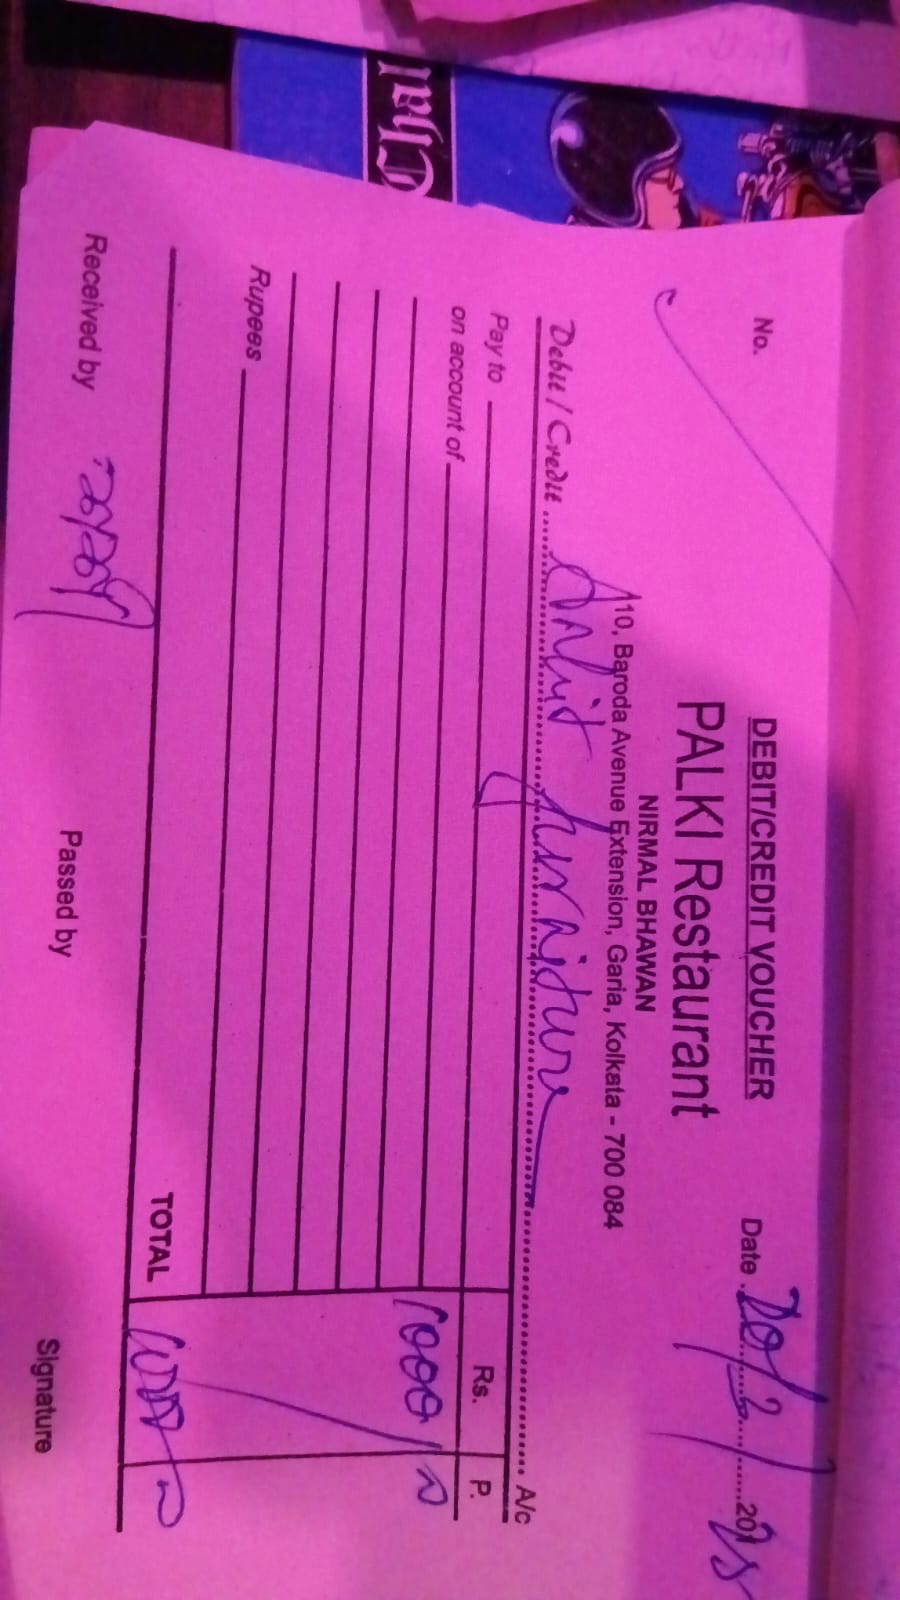 DEBIT/CREDIT VOUCHER
No.
Date 20/2/2025
PALKI Restaurant
NIRMAL BHAWAN
A10, Baroda Avenue Extension, Garia, Kolkata - 700 084
Debit / Credit Ankit furniture A/c
Pay to
Rs. P.
on account of
1000/-
Rupees
TOTAL 1000/-
Received by
Passed by
Signature